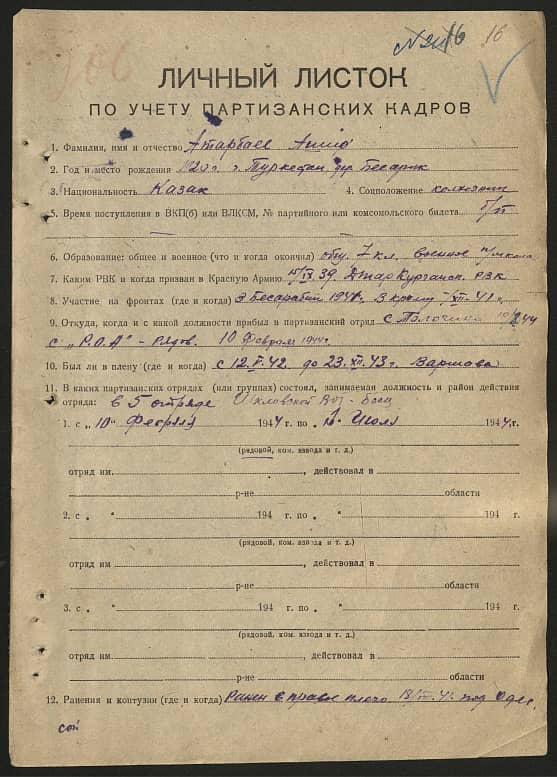 16
ЛИЧНЫЙ ЛИСТОК
ПО УЧЕТУ ПАРТИЗАНСКИХ КАДРОВ
1. Фамилия, имя и отчество Атарбаев
2. Год и место рождения 1920 г.
3. Национальность Казак 4. Соцположение колхозник
5. Время поступления в ВКП(б) или ВЛКСМ, № партийного или комсомольского билета б/п
6. Образование: общее и военное (что и когда окончил) общ. 7 кл. военное п/школа
7. Каким РВК и когда призван в Красную Армию 15/IX 39. РВК
8. Участие на фронтах (где и когда) В Бесарабии 1941 г. В Крыму 7/XII-41 г.
9. Откуда, когда и с какой должности прибыл в партизанский отряд с Толочина 10/2 44
с „Р.О.А" - Рядов. 10 Февраля 1944 г.
10. Был ли в плену (где и когда) с 12.V.42. до 23.XII.43 г. Варшава
11. В каких партизанских отрядах (или группах) состоял, занимаемая должность и район действия
отряда: в 5 отряде Боец
1. с „10" Февраля 1944 г. по „ Июля 1944 г.
(рядовой, ком. взвода и т. д.)
отряд им , действовал в
р-не области
2. с „ " 194 г. по „ " 194 г.
(рядовой, ком. взвода и т. д.)
отряд им , действовал в
р-не области
3. с „ " 194 г. по „ " 194 г.
(рядовой, ком. взвода и т. д.)
отряд им. , действовал в
р-не области
12. Ранения и контузии (где и когда) Ранен в правое плечо под Одес
сой